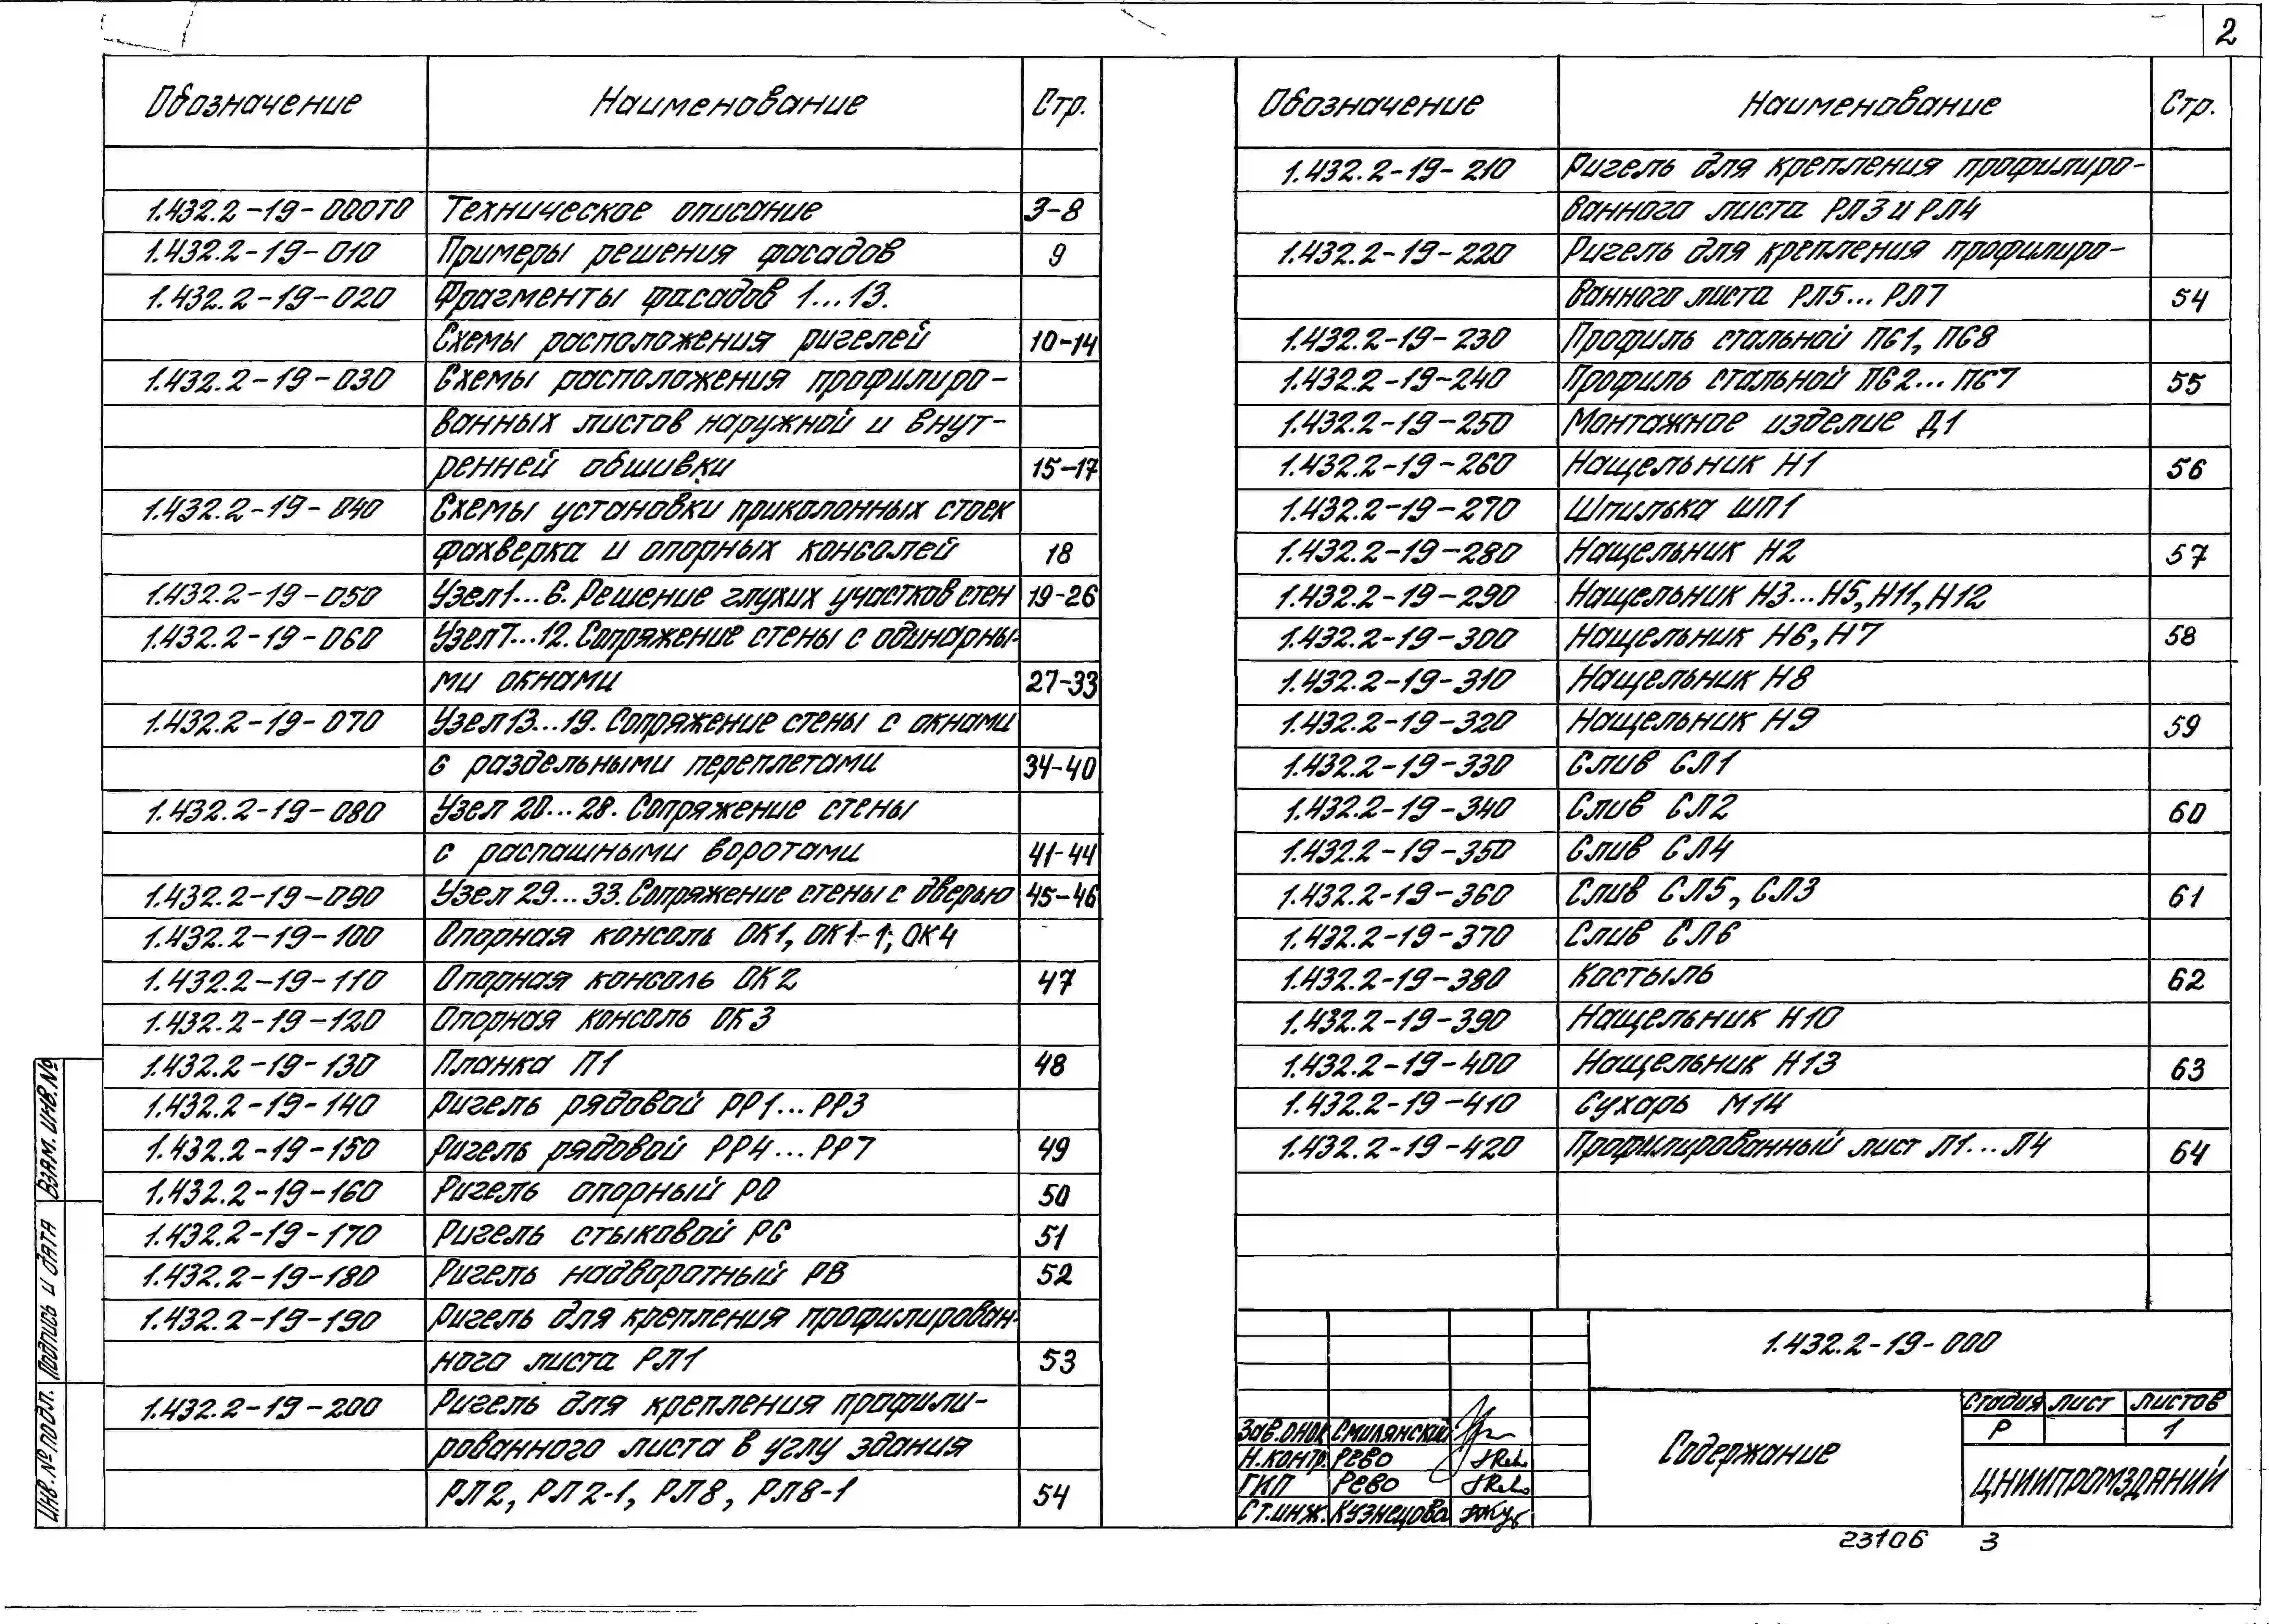 2
Обозначение Наименование Стр.
1.432.2-19-000ТО Техническое описание 3-8
1.432.2-19-010 Примеры решения фасадов 9
1.432.2-19-020 Фрагменты фасадов 1...13.
Схемы расположения ригелей 10-14
1.432.2-19-030 Схемы расположения профилиро-
ванных листов наружной и внут-
ренней обшивки 15-17
1.432.2-19-040 Схемы установки приколонных стоек
фахверка и опорных консолей 18
1.432.2-19-050 Узел 1...6. Решение глухих участков стен 19-26
1.432.2-19-060 Узел 7...12. Сопряжение стены с одинарны-
ми окнами 27-33
1.432.2-19-070 Узел 13...19. Сопряжение стены с окнами
с раздельными переплетами 34-40
1.432.2-19-080 Узел 20...28. Сопряжение стены
с распашными воротами 41-44
1.432.2-19-090 Узел 29...33. Сопряжение стены с дверью 45-46
1.432.2-19-100 Опорная консоль ОК1, ОК1-1; ОК4
1.432.2-19-110 Опорная консоль ОК2 47
1.432.2-19-120 Опорная консоль ОК3
1.432.2-19-130 Планка П1 48
1.432.2-19-140 Ригель рядовой РР1...РР3
1.432.2-19-150 Ригель рядовой РР4...РР7 49
1.432.2-19-160 Ригель опорный РО 50
1.432.2-19-170 Ригель стыковой РС 51
1.432.2-19-180 Ригель надворотный РВ 52
1.432.2-19-190 Ригель для крепления профилирован-
ного листа РЛ1 53
1.432.2-19-200 Ригель для крепления профили-
рованного листа в углу здания
РЛ2, РЛ2-1, РЛ8, РЛ8-1 54
Обозначение Наименование Стр.
1.432.2-19-210 Ригель для крепления профилиро-
ванного листа РЛ3 и РЛ4
1.432.2-19-220 Ригель для крепления профилиро-
ванного листа РЛ5...РЛ7 54
1.432.2-19-230 Профиль стальной ПС1, ПС8
1.432.2-19-240 Профиль стальной ПС2...ПС7 55
1.432.2-19-250 Монтажное изделие Д1
1.432.2-19-260 Нащельник Н1 56
1.432.2-19-270 Шпилька ШП1
1.432.2-19-280 Нащельник Н2 57
1.432.2-19-290 Нащельник Н3...Н5, Н11, Н12
1.432.2-19-300 Нащельник Н6, Н7 58
1.432.2-19-310 Нащельник Н8
1.432.2-19-320 Нащельник Н9 59
1.432.2-19-330 Слив СЛ1
1.432.2-19-340 Слив СЛ2 60
1.432.2-19-350 Слив СЛ4
1.432.2-19-360 Слив СЛ5, СЛ3 61
1.432.2-19-370 Слив СЛ6
1.432.2-19-380 Костыль 62
1.432.2-19-390 Нащельник Н10
1.432.2-19-400 Нащельник Н13 63
1.432.2-19-410 Сухарь М14
1.432.2-19-420 Профилированный лист Л1...Л4 64
1.432.2-19-000
Содержание
Стадия Лист Листов
Р 1
ЦНИИПРОМЗДАНИЙ
Зав.ОНОК Смилянский
Н.контр. Рево
ГИП Рево
Ст.инж. Кузнецова
23106 3
Взам. инв.№
Подпись и дата
Инв.№ подл.